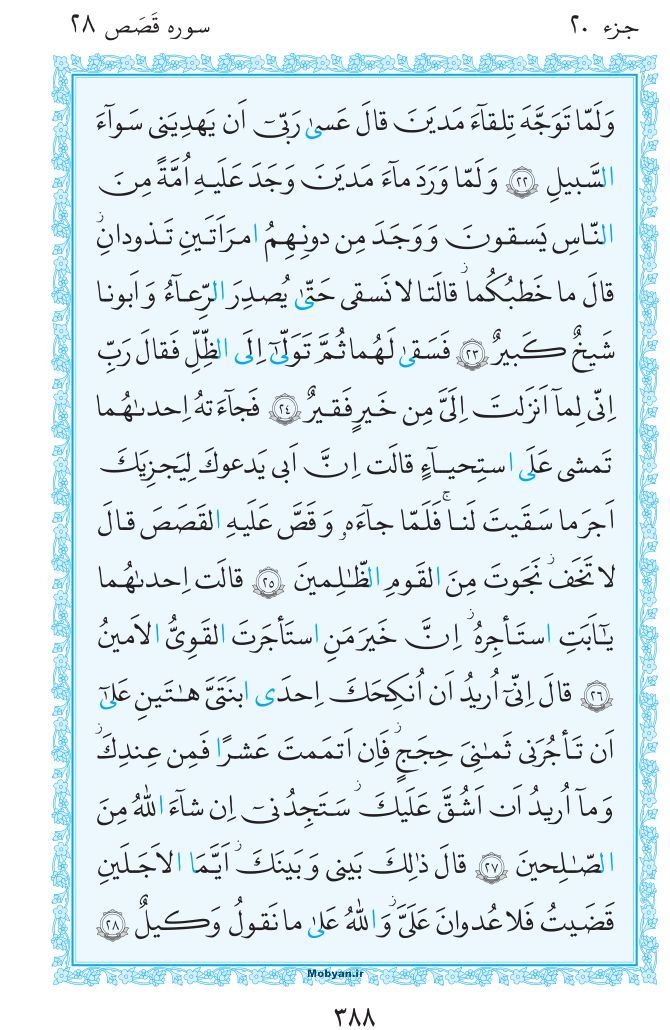 جزء ۲۰
سوره قَصَص ۲۸
وَلَمّا تَوَجَّهَ تِلقاءَ مَديَنَ قالَ عَسىٰ رَبّى أَن يَهدِيَنى سَواءَ
السَّبيلِ ﴿٢٢﴾ وَلَمّا وَرَدَ ماءَ مَديَنَ وَجَدَ عَلَيهِ اُمَّةً مِنَ
النّاسِ يَسقونَ وَوَجَدَ مِن دونِهِمُ امرَاَتَينِ تَذودانِ ز
قالَ ما خَطبُكُما ز قالَتا لا نَسقى حَتّىٰ يُصدِرَ الرِّعاءُ وَاَبونا
شَيخٌ كَبيرٌ ﴿٢٣﴾ فَسَقىٰ لَهُما ثُمَّ تَوَلّىٰ اِلَى الظِّلِّ فَقالَ رَبِّ
اِنّى لِما اَنزَلتَ اِلَىَّ مِن خَيرٍ فَقيرٌ ﴿٢٤﴾ فَجاءَتهُ اِحدىٰهُما
تَمشى عَلَى استِحياءٍ قالَت اِنَّ اَبى يَدعوكَ لِيَجزِيَكَ
اَجرَ ما سَقَيتَ لَنا ۚ فَلَمّا جاءَهۥ وَقَصَّ عَلَيهِ القَصَصَ قالَ
لا تَخَف ز نَجَوتَ مِنَ القَومِ الظّٰلِمينَ ﴿٢٥﴾ قالَت اِحدىٰهُما
يٰاَبَتِ استَأجِرهُ ز اِنَّ خَيرَ مَنِ استَأجَرتَ القَوِىُّ الاَمينُ
﴿٢٦﴾ قالَ اِنّى اُريدُ اَن اُنكِحَكَ اِحدَى ابنَتَىَّ هٰتَينِ عَلىٰ
اَن تَأجُرَنى ثَمٰنِىَ حِجَجٍ ز فَاِن اَتمَمتَ عَشرًا فَمِن عِندِكَ ز
وَما اُريدُ اَن اَشُقَّ عَلَيكَ ز سَتَجِدُنى اِن شاءَ اللّٰهُ مِنَ
الصّٰلِحينَ ﴿٢٧﴾ قالَ ذٰلِكَ بَينى وَبَينَكَ ز اَيَّمَا الاَجَلَينِ
قَضَيتُ فَلا عُدوانَ عَلَىَّ ز وَاللّٰهُ عَلىٰ ما نَقولُ وَكيلٌ ﴿٢٨﴾
Mobyan.ir
۳۸۸